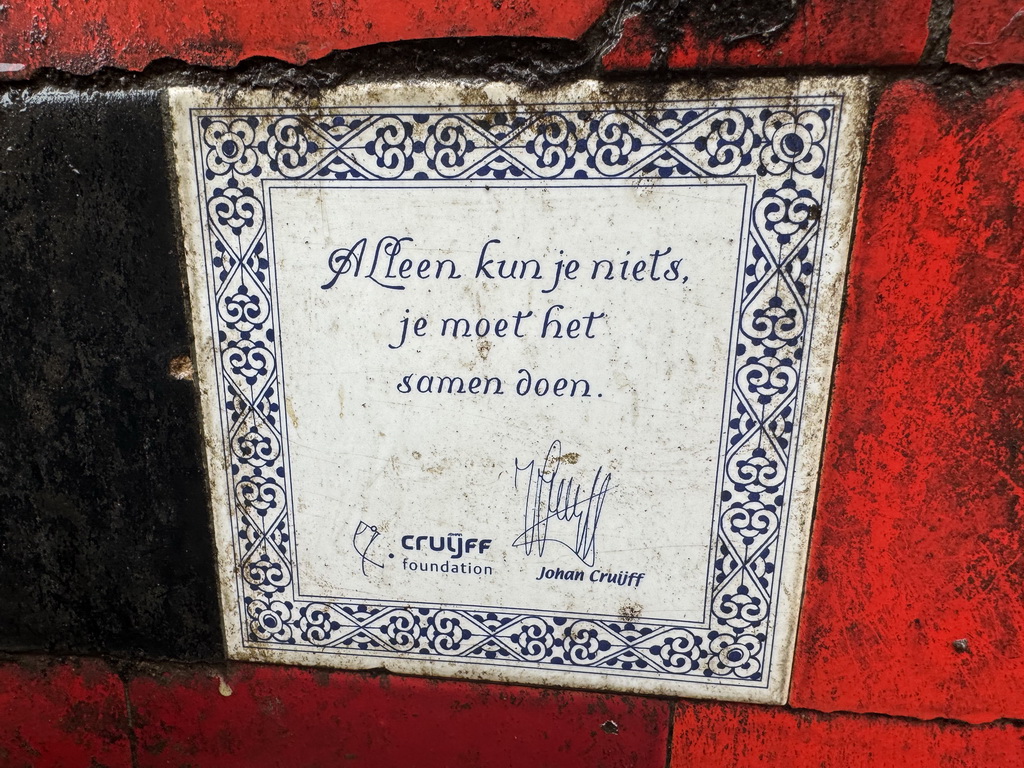 Alleen kun je niets,
je moet het
samen doen.
cruijff
foundation
Johan Cruijff